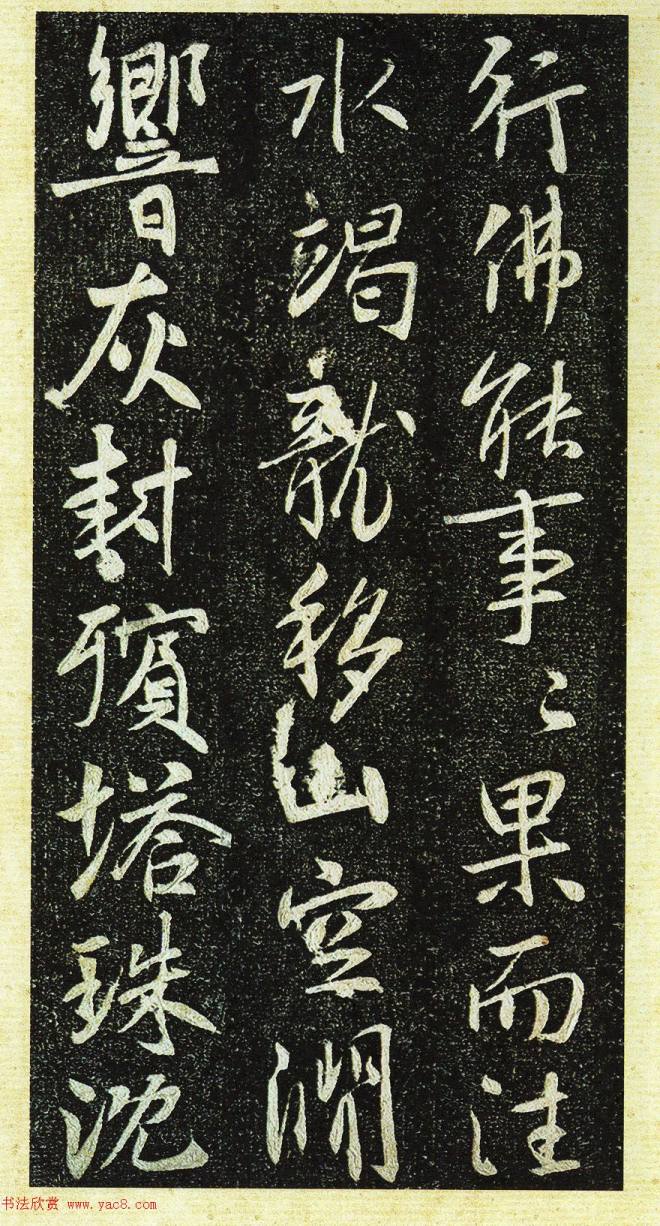 行佛能事〻果而洼
水竭龍移山空澗
響灰封殯塔珠沈
书法欣赏 www.yac8.com